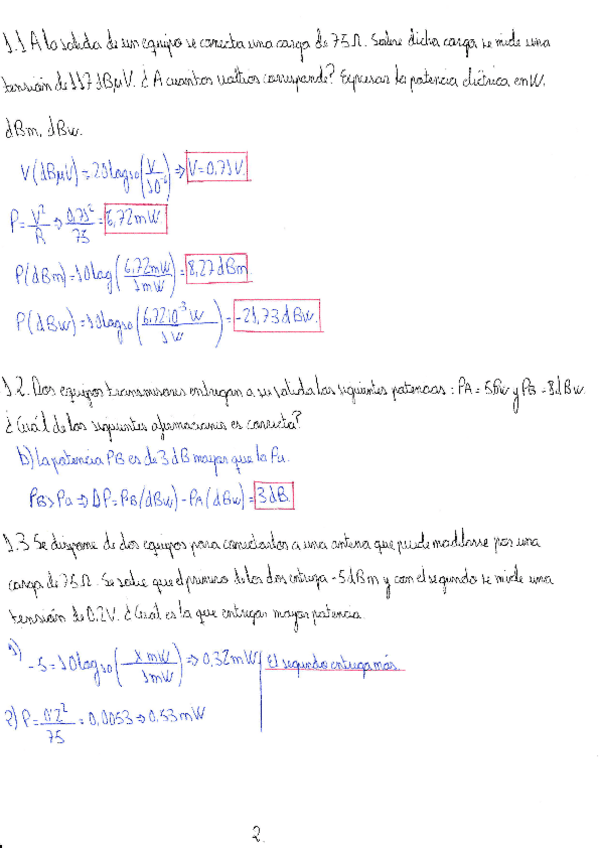 1.1 A la salida de un equipo se conecta una carga de 75Ω. Sobre dicha carga se mide una
tensión de 117 dBµV. ¿A cuantos vatios corresponde? Expresar la potencia eléctrica en W,
dBm, dBw.
V(dBµV) = 20log10(V/10^-6) ⇒ V=0.71V.
P = V²/R ⇒ 0,71²/75 = 6,72mW
P(dBm) = 10log(6,72mW/1mW) = 8,27dBm
P(dBw) = 10log10(6,72·10^-3 W/1W) = -21,73dBw.
1.2. Dos equipos transmisores entregan a su salida las siguientes potencias: PA = 5,6w y PB = 8dBw.
¿Cuál de las siguientes afirmaciones es correcta?
b) la potencia PB es de 3dB mayor que la Pa.
PB>Pa ⇒ ΔP = PB(dBw) - PA(dBw) = 3dB.
1.3 Se dispone de dos equipos para conectarlos a una antena que puede modelarse por una
carga de 75Ω. Se sabe que el primero de los dos entrega -5dBm y con el segundo se mide una
tensión de 0.2V. ¿Cual es la que entrega mayor potencia.
1) -5 = 10log10(X mW/1mW) ⇒ 0,32mW El segundo entrega más.
2) P = 0,2²/75 = 0,0053 ⇒ 0,53mW
2